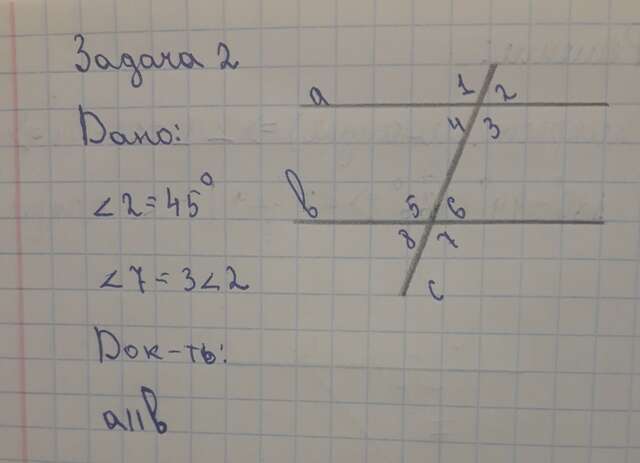 Задача 2
Дано:
∠2=45°
∠7=3∠2
Док-ть:
a||b
a
1 2
4 3
b
5 6
8 7
c